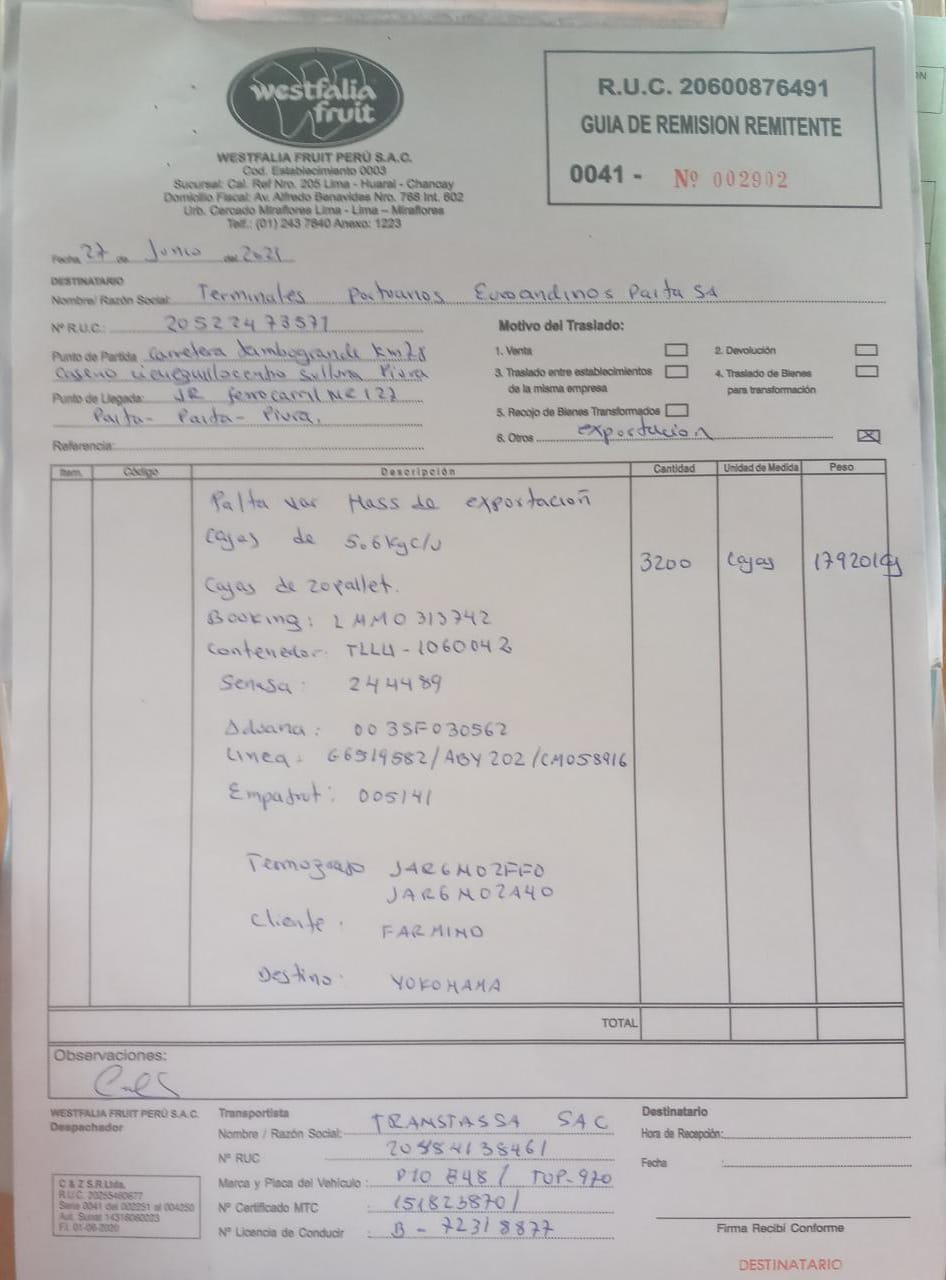 westfalia
fruit
WESTFALIA FRUIT PERÚ S.A.C.
Cod. Establecimiento 0003
Sucursal: Cal. Ref Nro. 205 Lima - Huaral - Chancay
Domicilio Fiscal: Av. Alfredo Benavides Nro. 768 Int. 602
Urb. Cercado Miraflores Lima - Lima – Miraflores
Telf.: (01) 243 7840 Anexo: 1223
R.U.C. 20600876491
GUIA DE REMISION REMITENTE
0041 - Nº 002902
Fecha 27 de Junio del 2021
DESTINATARIO
Nombre/ Razón Social: Terminales Portuarios Euroandinos Paita SA
Nº R.U.C.: 20522473571
Punto de Partida: Carretera tambogrande Km28
Sullana Piura
Punto de Llegada: JR ferrocarril NR 127
Paita - Paita - Piura.
Referencia:
Motivo del Traslado:
1. Venta
2. Devolución
3. Traslado entre establecimientos
de la misma empresa
4. Traslado de Bienes
para transformación
5. Recojo de Bienes Transformados
6. Otros exportacion X
Item. Código Descripción Cantidad Unidad de Medida Peso
Palta var Hass de exportación
Cajas de 5.6kg c/u
3200 Cajas 17920kg
Cajas de 20 pallet.
Booking: LMM0313742
Contenedor: TLLU-1060042
Senasa: 244489
Aduana: 003SF030562
Linea: G6519582/ABY202/CM058916
Empafrut: 005141
Termografo JAR6M02FF0
JAR6M02A40
Cliente: FARMIND
Destino: YOKOHAMA
TOTAL
Observaciones:
WESTFALIA FRUIT PERÚ S.A.C.
Despachador
C & Z S.R.Ltda.
R.U.C. 20255460677
Serie 0041 del 002251 al 004250
Aut. Sunat 14316060023
F.I. 01-06-2020
Transportista
Nombre / Razón Social: TRANSTASSA SAC
Nº RUC 20484138461
Marca y Placa del Vehículo: P10 848 / TUP-970
Nº Certificado MTC: 151823870/
Nº Licencia de Conducir: B - 72318877
Destinatario
Hora de Recepción:
Fecha:
Firma Recibí Conforme
DESTINATARIO